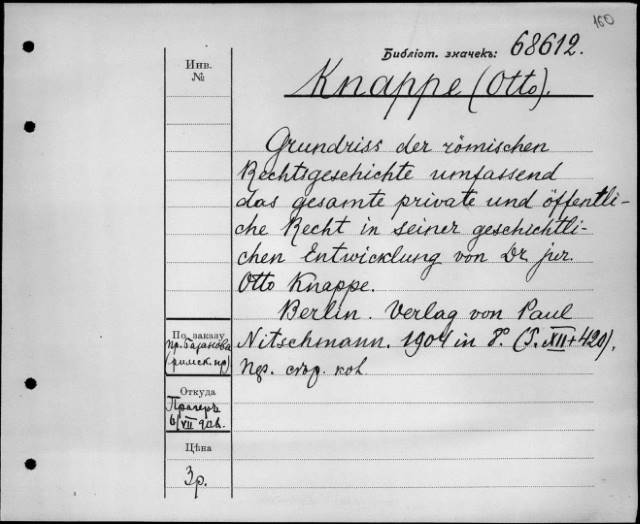 160
Библіот. значекъ: 68612.
Инв.
№
Knappe (Otto).
Grundriss der römischen
Rechtsgeschichte umfassend
das gesamte private und öffentli-
che Recht in seiner geschichtli-
chen Entwicklung von Dr. jur.
Otto Knappe.
Berlin. Verlag von Paul
Nitschmann. 1904 in 8º. (S. XII + 420).
кол.
По заказу
пр. Базанова
(римск. пр)
Откуда
Прагеръ
6/VII
Цѣна
3 р.